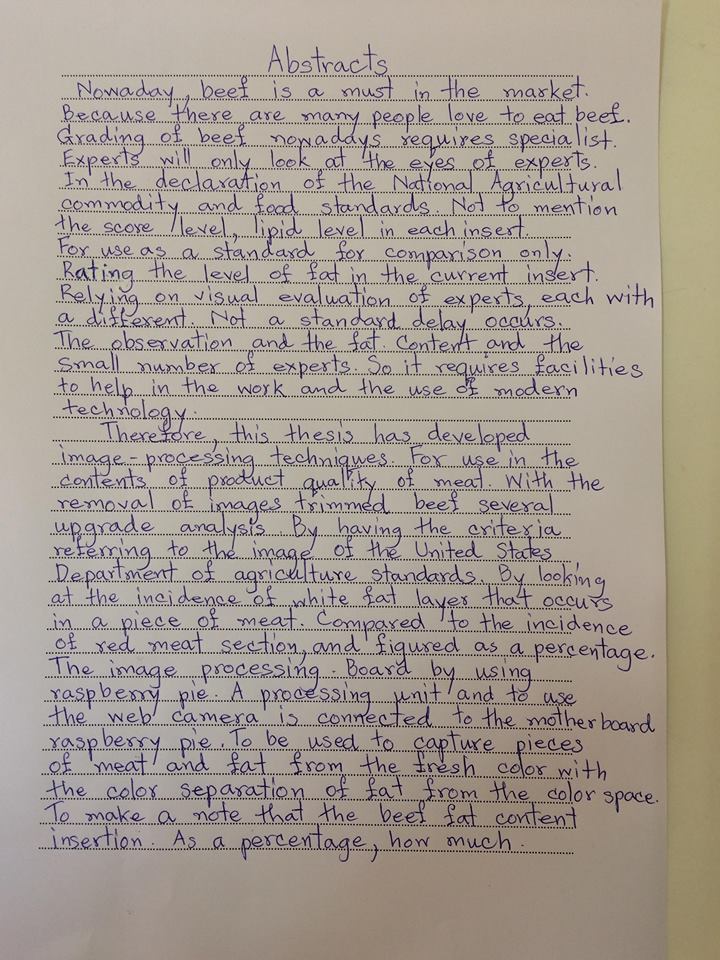 Abstracts
Nowaday, beef is a must in the market.
Because there are many people love to eat beef.
Grading of beef nowadays requires specialist.
Experts will only look at the eyes of experts.
In the declaration of the National Agricultural
commodity and food standards. Not to mention
the score /level, lipid level in each insert.
For use as a standard for comparison only.
Rating the level of fat in the current insert.
Relying on visual evaluation of experts, each with
a different. Not a standard delay occurs.
The observation and the fat. Content and the
Small number of experts. So it requires facilities
to help in the work and the use of modern
technology.
Therefore, this thesis has developed
image-processing techniques. For use in the
contents of product quality of meat. With the
removal of images trimmed beef several
upgrade analysis. By having the criteria
referring to the image of the United States
Department of agriculture standards. By looking
at the incidence of white fat layer that occurs
in a piece of meat. Compared to the incidence
of red meat section, and figured as a percentage.
The image processing. Board by using
raspberry pie. A processing unit and to use
the web camera is connected to the motherboard
raspberry pie. To be used to capture pieces
of meat and fat from the fresh color with
the color separation of fat from the color space.
To make a note that the beef fat content
insertion. As a percentage, how much.